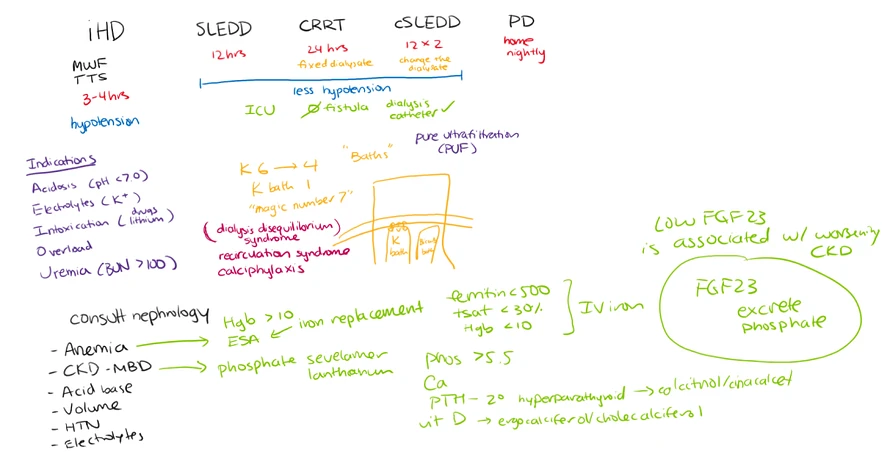 iHD
MWF
TTS
3-4hrs
hypotension
SLEDD
12hrs
CRRT
24 hrs
fixed dialysate
cSLEDD
12 x 2
change the
dialysate
PD
home
nightly
less hypotension
ICU
fistula
dialysis
catheter ✓
Indications
Acidosis (pH <7.0)
Electrolytes (K+)
Intoxication (drugs
lithium)
Overload
Uremia (BUN >100)
K 6 → 4
K bath 1
"magic number 7"
"Baths"
pure ultrafiltration
(PUF)
(dialysis disequilibrium)
syndrome
recirculation syndrome
calciphylaxis
K
bath
bath
LOW FGF23
is associated w/ worsening
CKD
FGF23
excrete
phosphate
consult nephrology
- Anemia →
- CKD-MBD →
- Acid base
- Volume
- HTN
- Electrolytes
Hgb >10
ESA ← iron replacement
phosphate sevelamer
lanthanum
ferritin <500
tsat <30%
Hgb <10
IV iron
phos >5.5
Ca
PTH - 2° hyperparathyroid → calcitriol/cinacalcet
vit D → ergocalciferol/cholecalciferol